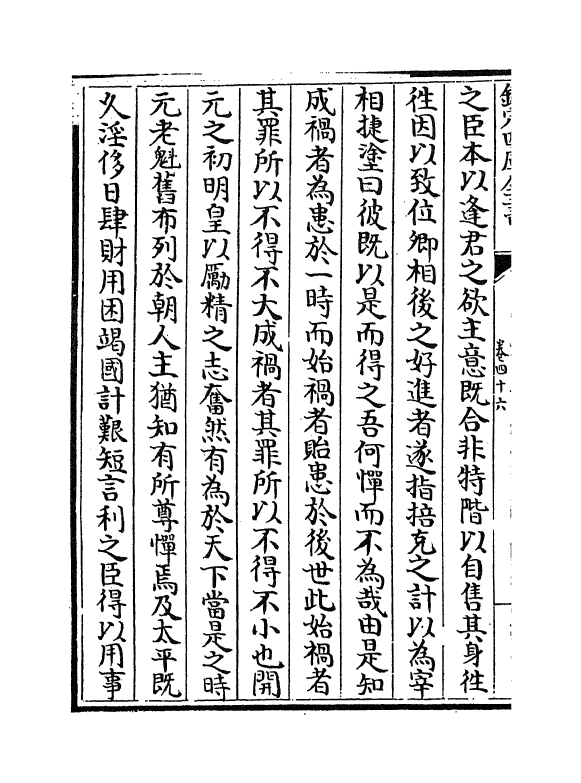 欽定四庫全書
卷四十六
之臣本以逢君之欲主意既合非特階以自售其身徃
徃因以致位卿相後之好進者遂指掊克之計以為宰
相捷塗曰彼既以是而得之吾何憚而不為哉由是知
成禍者為患於一時而始禍者貽患於後世此始禍者
其罪所以不得不大成禍者其罪所以不得不小也開
元之初明皇以勵精之志奮然有為於天下當是之時
元老魁舊布列於朝人主猶知有所尊憚焉及太平既
乆淫侈日肆財用困竭國計艱短言利之臣得以用事